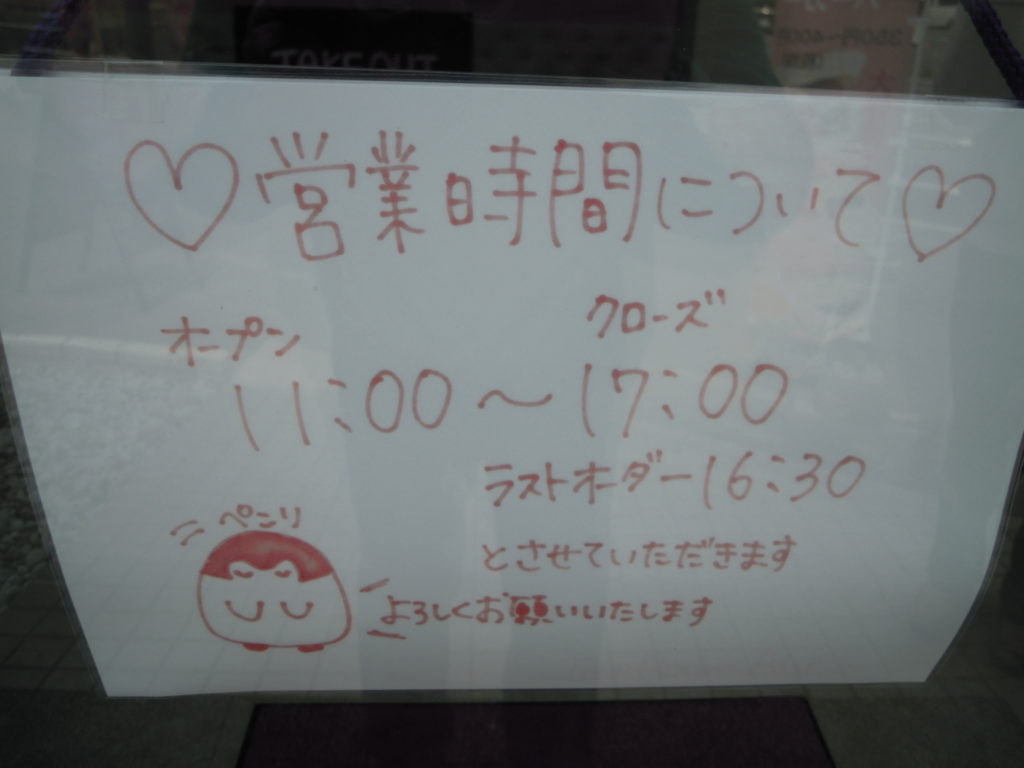 TAKE OUT
350円~400円
♡営業時間について♡
オープン
クローズ
11:00~17:00
ラストオーダー16:30
ぺこり
とさせていただきます
よろしくお願いいたします